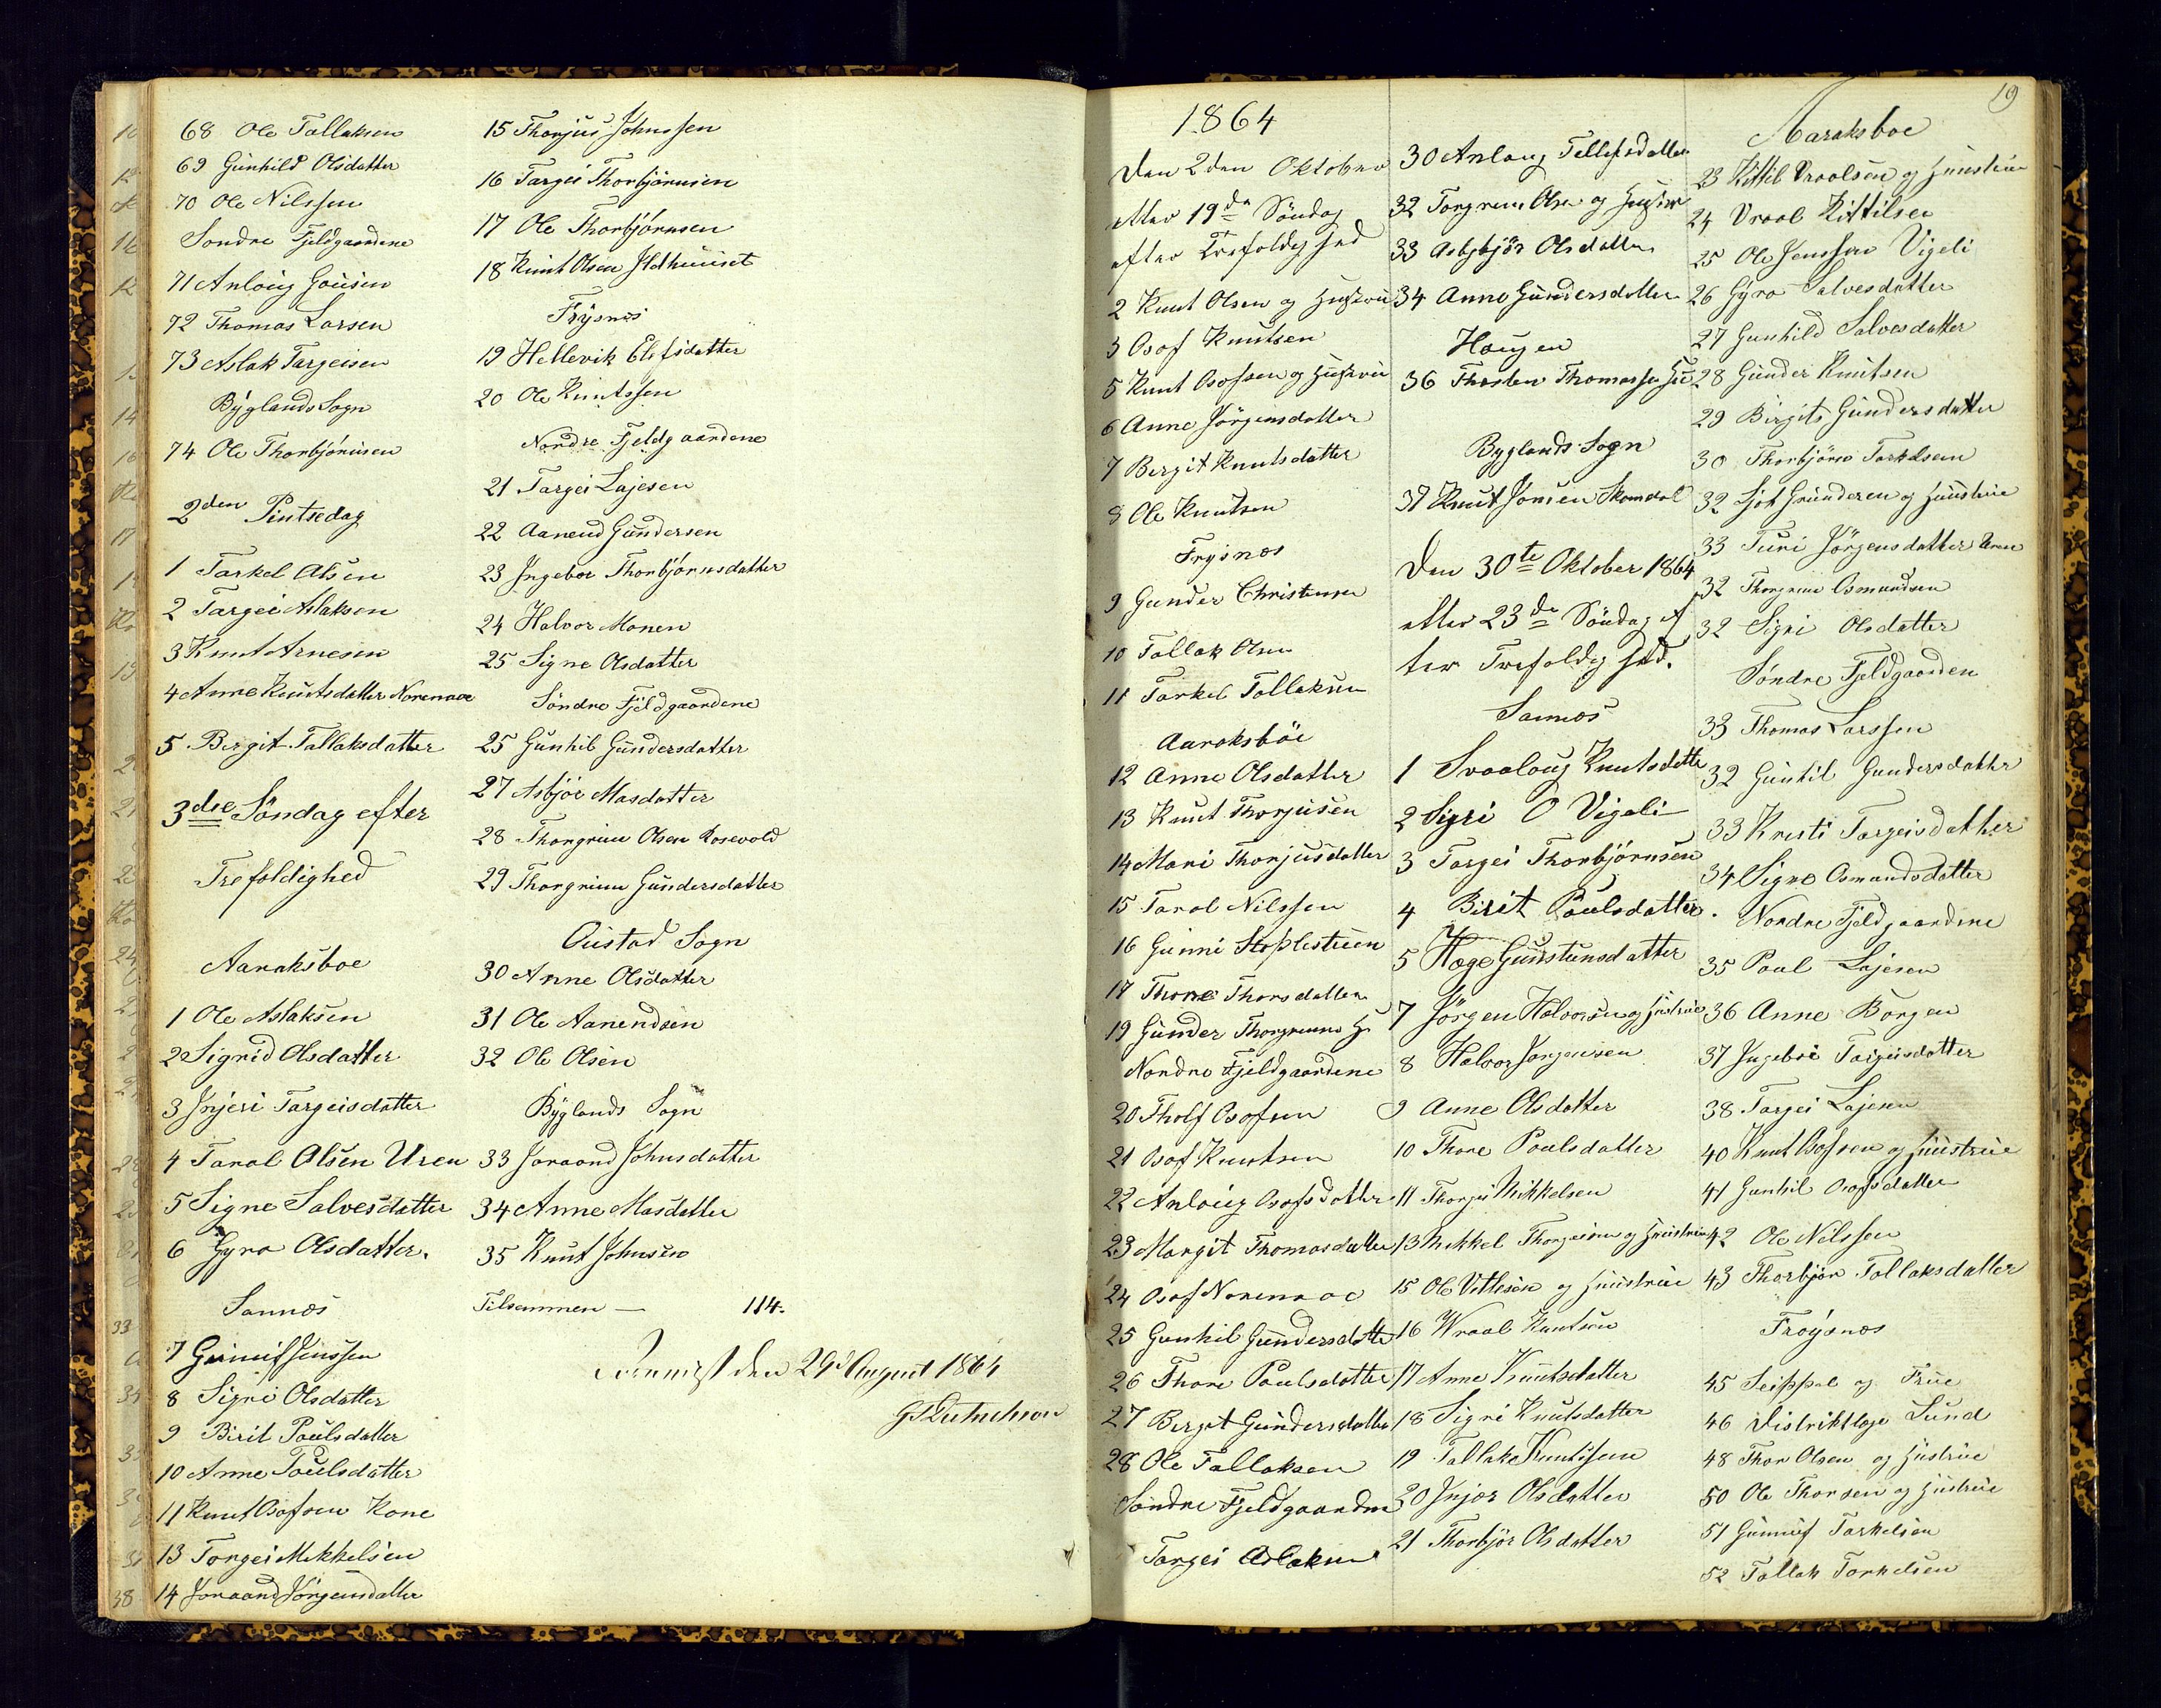 68 Ole Tallaksen
69 Gunhild Olsdatter
70 Ole Nilssen
Søndre Fjeldgaardene
71 Anlaug
72 Thomas Larsen
73 Aslak Targeisen
Byglands Sogn
74 Ole Thorbjørnsen
2den Pintsedag
1 Tarkel Alsen
2 Targei Aslaksen
3 Knut Arnesen
4 Anne Knutsdatter Norenaae
5 Bergit Tallaksdatter
3die Søndag efter
Trefoldighed
Aaraksboe
1 Ole Aslaksen
2 Sigrid Olsdatter
3 Injeri Targeisdatter
4 Taral Alsen Uren
5 Signe Salvesdatter
6 Gyro Olsdatter.
Sannæs
7 Jenssen
8 Signi Olsdatter
9 Birit Paulsdatter
10 Anne Paulsdatter
11 Knut Osofsen Kone
13 Torgei Mikkelsen
14 Joraand Jörgensdatter
15 Thorjus Johnssen
16 Targei Thorbjørnsen
17 Ole Thorbjörnsen
18 Knut Olsen
Frysnes
19 Hellevik Elefsdatter
20 Ole Knutssen
Nordre Fjeldgaardene
21 Targei Lajesen
22 Aanend Gundersen
23 Ingebor Thorbjørnsdatter
24 Halvor Monen
25 Signe Olsdatter
Søndre Fjeldgaardene
25 Gunhil Gundersdatter
27 Asbjör Masdatter
28 Thorgrim Olsen Rosevold
29 Thorgrim Gundersdatter
Oustad Sogn
30 Anne Olsdatter
31 Ole Aanendsen
32 Ole Olsen
Byglands Sogn
33 Joraand Johnsdatter
34 Anne Masdatter
35 Knut Johnsen
Tilsammen — 114.
den 29d August 1864
1864
Den 2den Oktober
etter 19de Søndag
efter Trefoldighed
2 Knut Olsen og Hustru
3 Osof Knutsen
5 Knut Osofsen og Hustru
6 Anne Jörgensdatter
7 Bergit Knutsdatter
8 Ole Knutsen
Frysnes
9 Gunder Christensen
10 Tallak Olsen
11 Tarkel Tallaksen
Aaraksböe
12 Anne Olsdatter
13 Knut Thorjusen
14 Mari Thorjusdatter
15 Tarol Nilssen
16 Gunni
17 Thore Thorsdatter
19 Gunder Thorgrimsen H
Nordre Fjeldgaardene
20 Tholf Osofsen
21 Osof Knutsen
22 Anlaug Osofsdatter
23 Margit Thomasdatter
24 Osof Norenaae
25 Gunhil Gundersdatter
26 Thore Paulsdatter
27 Bergit Gundersdatter
28 Ole Tallaksen
Søndre Fjeldgaardene
Targei Aslaksen
30 Anlaug Tellefsdatter
32 Torgrim Olsen og Hustru
33 Asbjör Olsdatter
34 Anne Gundersdatter
Haugen
36 Thosten Thomassen Hu
Byglands Sogn
37 Knut Jonsen Skomdal
Den 30te Oktober 1864
etter 23de Søndag ef
ter Trefoldighed.
Sannæs
1 Svaloug Knutsdatter
2 Sigri O Vigeli
3 Targei Thorbjörnsen
4 Birit Paulsdatter.
5 Hoge Gunstensdatter
7 Jörgen Halvorsen og Hustrue
8 Halvor Jorgensen
9 Anne Olsdatter
10 Thore Paulsdatter
11 Thorjus Mikkelsen
13 Mikkel Thorjusen og Huustrue
15 Ole Vetlesen og Huustrue
16 Wraal Knutsen
17 Anne Knutsdatter
18 Sigri Knutsdatter
19 Tallak Knutssen
20 Injær Olsdatter
21 Thorbjör Olsdatter
19
Aaraksboe
23 Kittil Vraalsen og Huustrue
24 Vraal Kittilsen
25 Ole Jenssen Vigeli
26 Gyro Salvesdatter
27 Gunhild Salvesdatter
28 Gunder Knutsen
29 Birgite Gundersdatter
30 Thorbjörn Tarkelsen
32 Sjot Gundersen og Huustrue
33 Turi Jörgensdatter Uren
32 Thorgrim Osmundsen
32 Signi Olsdatter
Søndre Fjeldgaarden
33 Thomas Larssen
32 Gunhil Gundersdatter
33 Kristi Targeisdatter
34 Signe Osmundsdatter
Nordre Fjeldgaardene
35 Paul Lajesen
36 Anne Borgen
37 Ingebor Targeisdatter
38 Targei Lajesen
40 Knut Osofsen og Huustrue
41 Gunhil Osofsdatter
42 Ole Nilssen
43 Thorbjör Tallaksdatter
Froysnæs
45 Seippel og Frue
46 Distriktlæge Lund
48 Thor Olsen og Hustrue
50 Ole Thorsen og Hustrue
51 Gunnuf Tarkelsen
52 Tallak Torkelsen